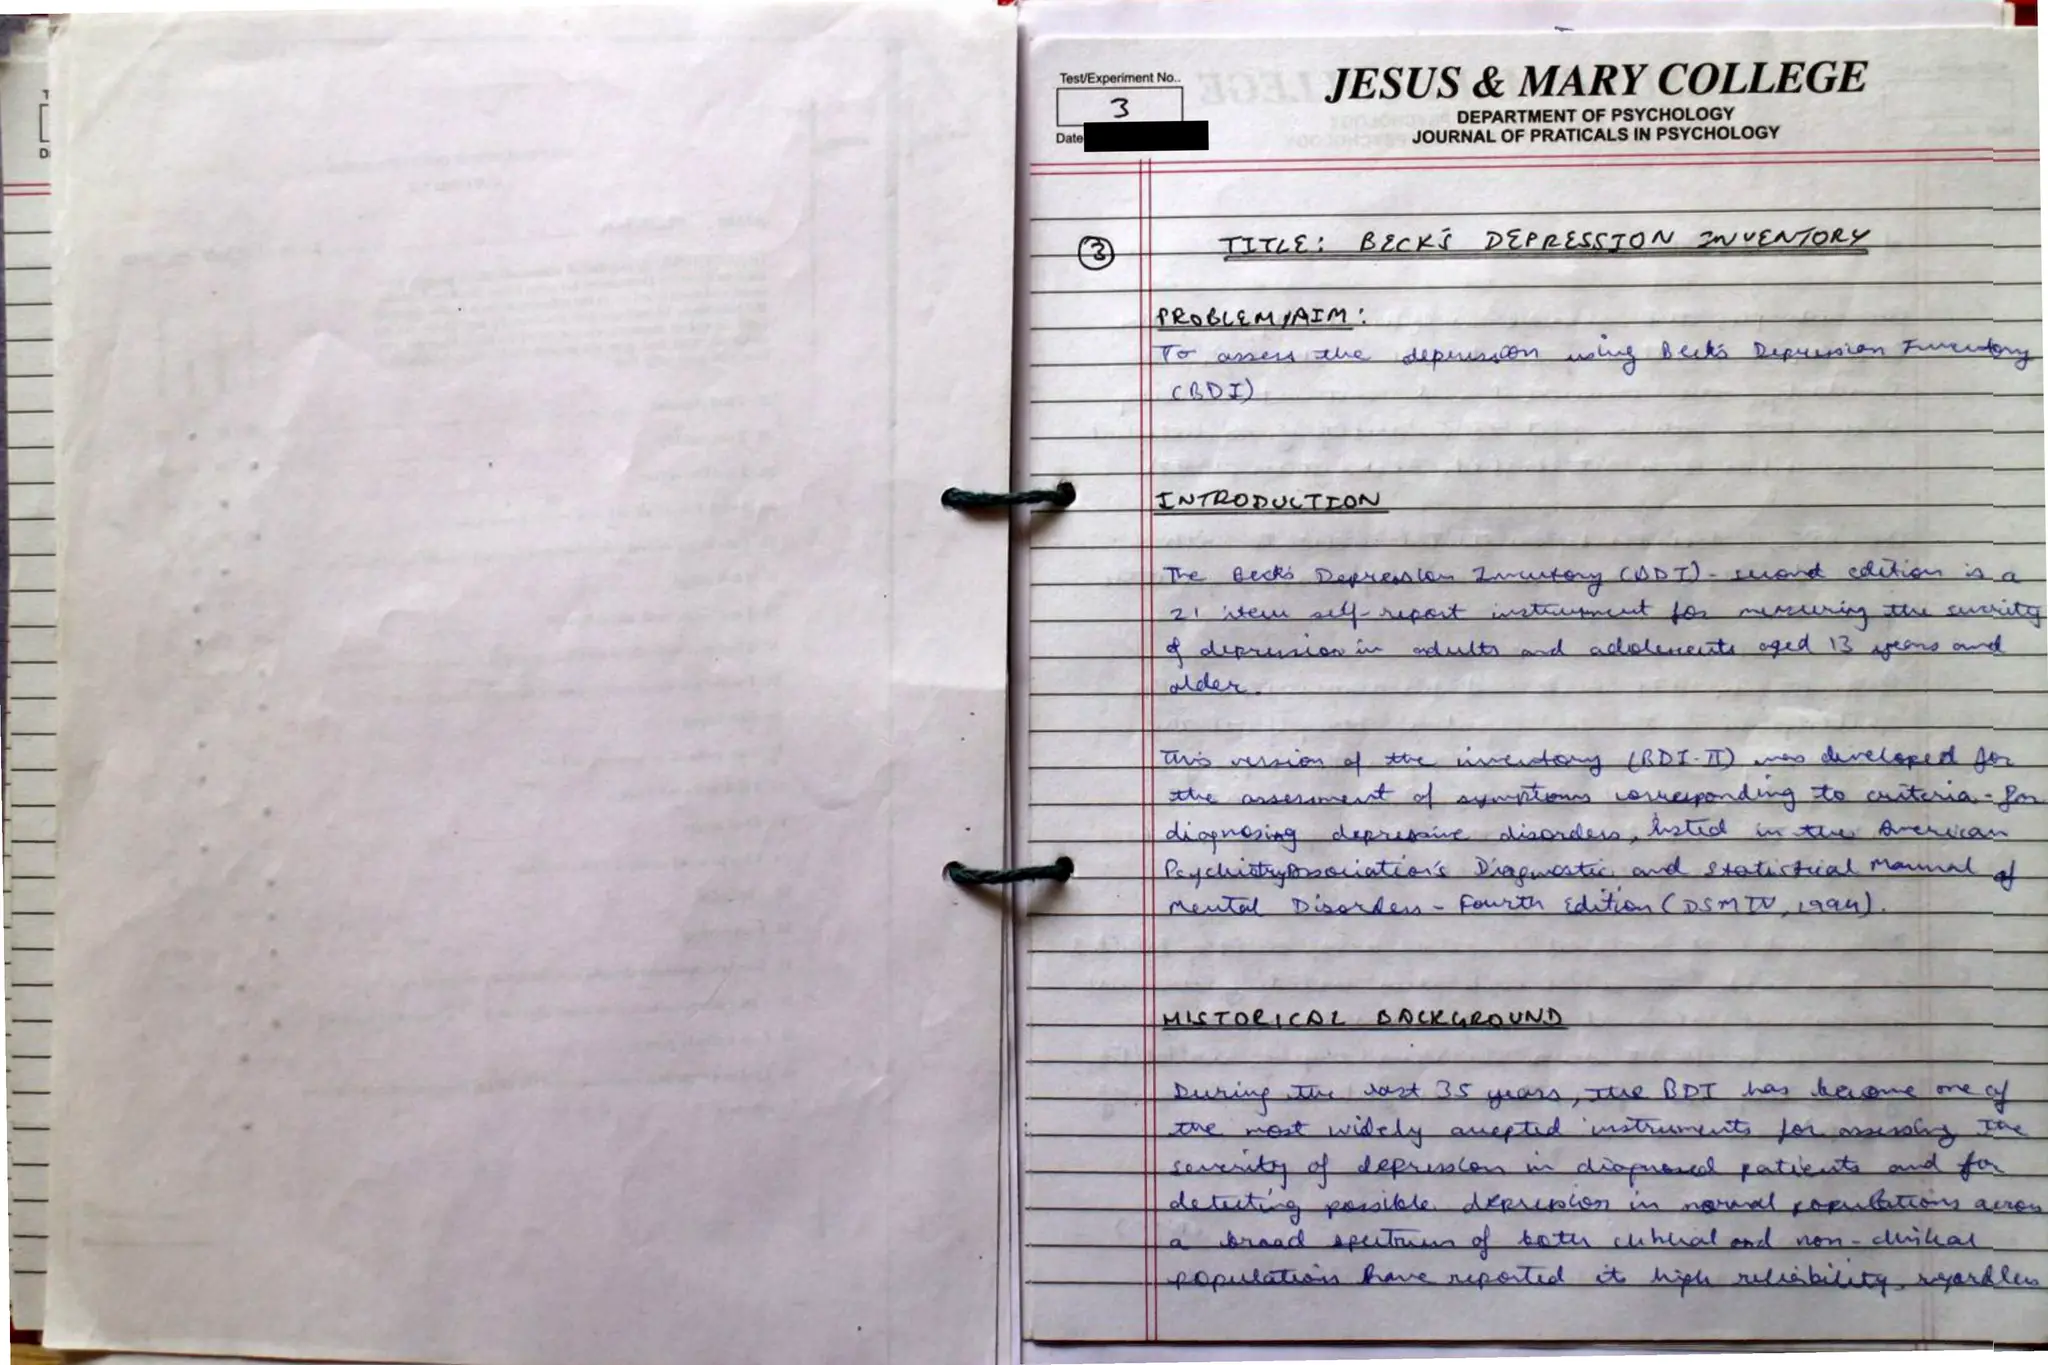 Test/Experiment No..
3
Date
JESUS & MARY COLLEGE
DEPARTMENT OF PSYCHOLOGY
JOURNAL OF PRATICALS IN PSYCHOLOGY
3
TITLE: BECK'S DEPRESSION INVENTORY
PROBLEM/AIM:
To assess the depression using Beck's Depression Inventory
(BDI)
INTRODUCTION
The Beck's Depression Inventory (BDI) - second edition is a
21 item self-report instrument for measuring the severity
of depression in adults and adolescents aged 13 years and
older.
This version of the inventory (BDI-II) was developed for
the assessment of symptoms corresponding to criteria - for
diagnosing depressive disorders, listed in the American
Psychiatry Association's Diagnostic and Statistical Manual of
Mental Disorders - Fourth Edition (DSM IV, 1994).
HISTORICAL BACKGROUND
During the last 35 years, the BDI has become one of
the most widely accepted instruments for assessing the
severity of depression in diagnosed patients and for
detecting possible depression in normal populations across
a broad spectrum of both clinical and non-clinical
populations have reported it high reliability, regardless